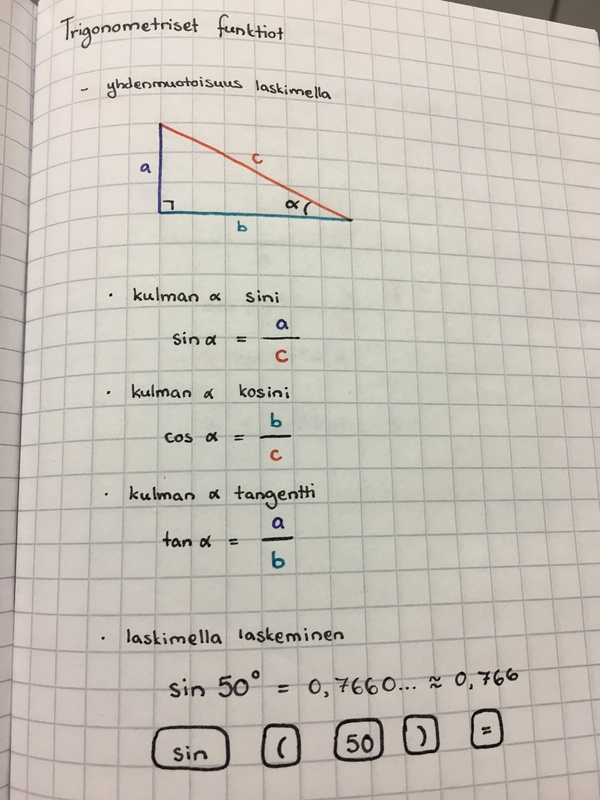 Trigonometriset funktiot
- yhdenmuotoisuus laskimella
a
c
α
b
· kulman α sini
sin α = a/c
· kulman α kosini
cos α = b/c
· kulman α tangentti
tan α = a/b
· laskimella laskeminen
sin 50° = 0,7660... ≈ 0,766
sin ( 50 ) =